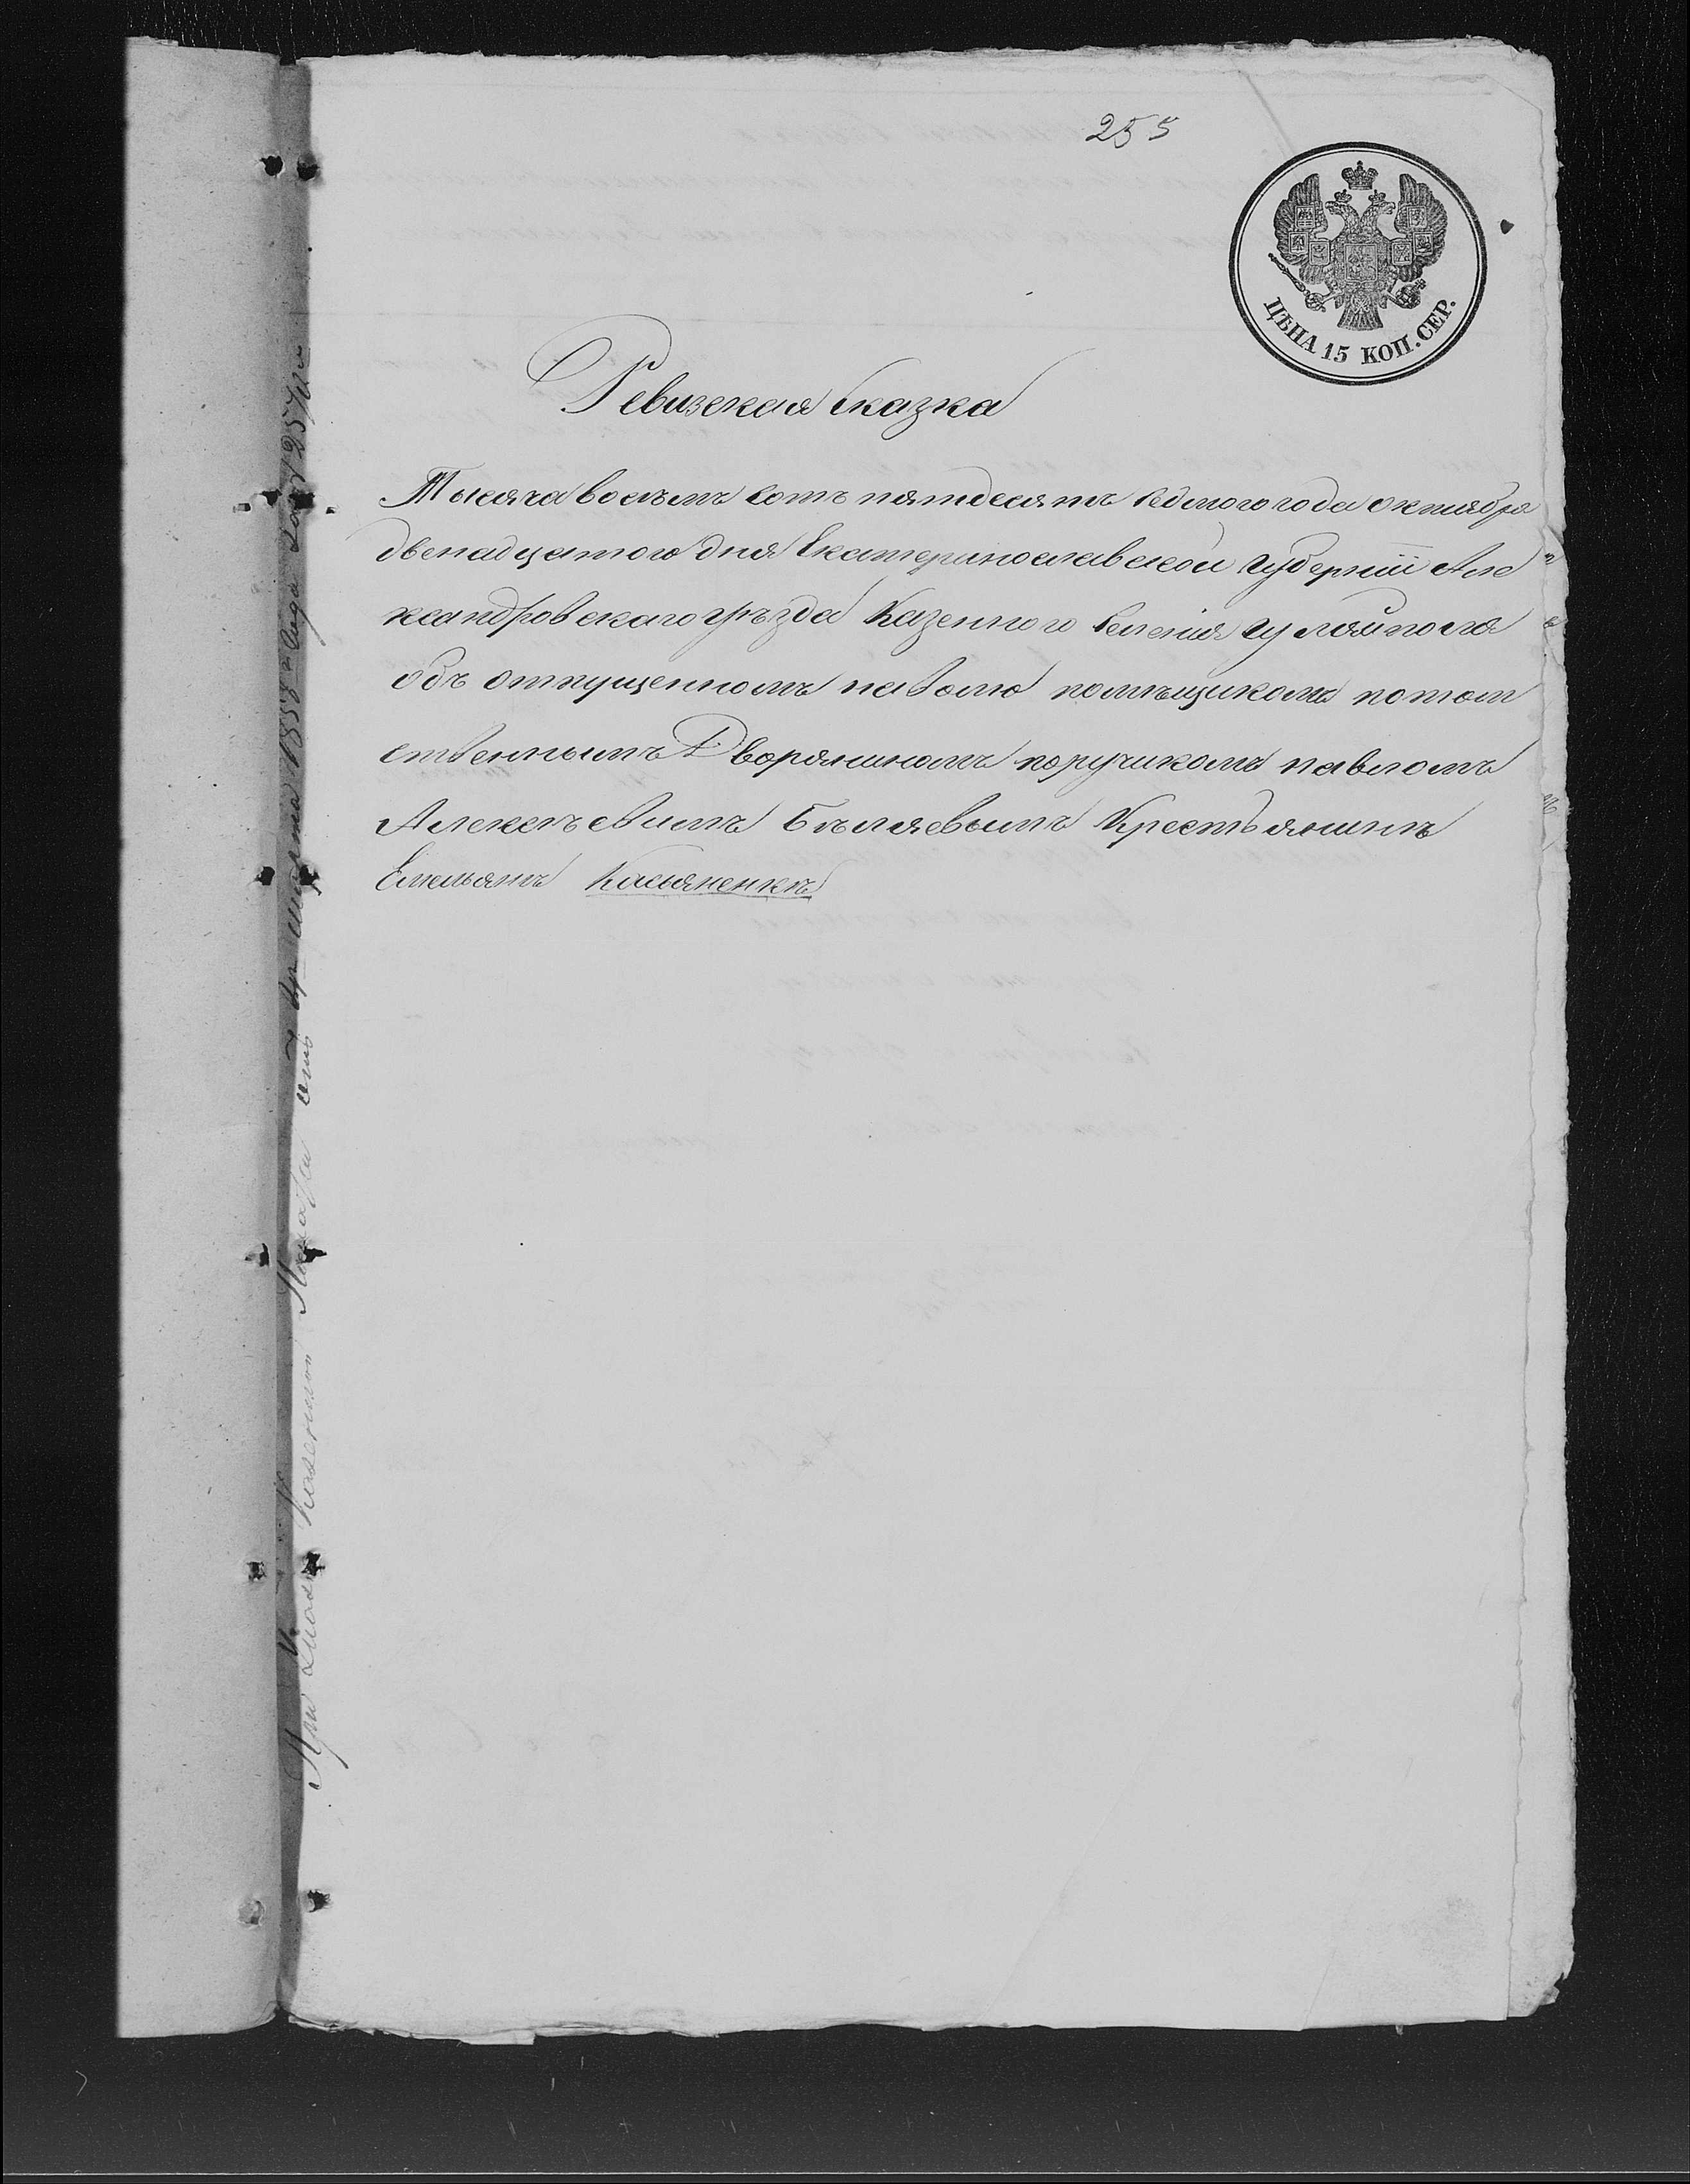 255
ЦѢНА 15 КОП. СЕР.
Ревизская Сказка
Тысяча восемъ сотъ пятдесятъ седмого года октября
двенадцатого дня Екатеринославской губернiи Але
ксандровскаго уѣзда Казенного селенiя гуляйполя
объ отпущенномъ наволю помѣщикомъ потом
ственнымъ Дворяниномъ поручикомъ павломъ
Алексѣевимъ Бѣляевымъ Крестьянинѣ
Емельянѣ Касьяненкѣ